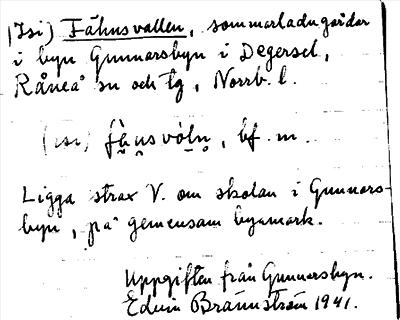 (Isi) Fähusvallen, sommarladugårdar
i byn Gunnarsbyn i Degersel,
Råneå sn och tg, Norrb. l.
(isi) fä̀husvòln, bf. m.
Ligga strax V. om skolan i Gunnars-
byn, på gemensam byamark.
Uppgiften från Gunnarsbyn.
Edvin Brännström 1941.